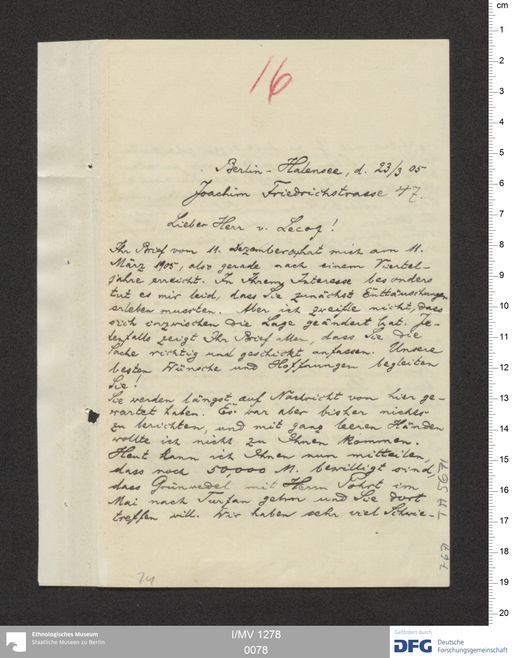 16
Berlin-Halensee, d. 23/3 05
Joachim Friedrichstrasse 47.
Lieber Herr v. Lecoq!
Ihr Brief vom 11. Dezember hat mich am 11.
März 1905, also gerade nach einem Viertel-
jahre erreicht. In Ihrem Interesse besonders
tut es mir leid, dass Sie zunächst Enttäuschungen
erleben mussten. Aber ich zweifle nicht, dass
sich inzwischen die Lage geändert hat. Je-
denfalls zeigt Ihr Brief allen, dass Sie die
Sache richtig und geschickt anfassen. Unsere
besten Wünsche und Hoffnungen begleiten
Sie!
Sie werden längst auf Nachricht von hier ge-
wartet haben. Es war aber bisher nichts
zu berichten, und mit ganz leeren Händen
wollte ich nicht zu Ihnen kommen.
Heut kann ich Ihnen nun mitteilen,
dass noch 50,000 M. bewilligt sind,
dass Grünwedel mit Herrn Pohrt im
Mai nach Turfan gehen und Sie dort
treffen will. Wir haben sehr viel Schwie-
TA 5671
74
Ethnologisches Museum
Staatliche Museen zu Berlin
I/MV 1278
0078
Gefördert durch
DFG Deutsche
Forschungsgemeinschaft
cm
1
2
3
4
5
6
7
8
9
10
11
12
13
14
15
16
17
18
19
20